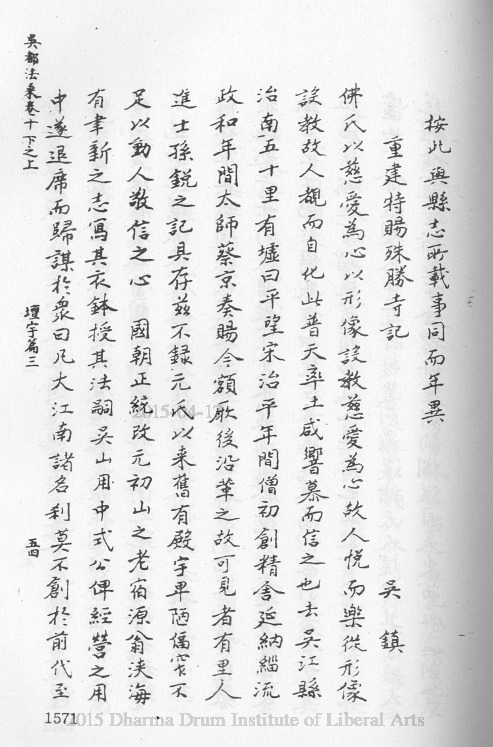 按此與縣志所載事同而年異
重建特賜殊勝寺記
吳鎮
佛氏以慈愛為心以形像設教慈愛為心故人悅而樂從形像
設教故人覩而自化此普天率土咸響慕而信之也去吳江縣
治南五十里有墟曰平望宋治平年間僧初創精舍延納緇流
政和年間太師蔡京奏賜今額厥後沿革之故可見者有里人
進士孫銳之記具存茲不錄元氏以來舊有殿宇卑陋偪窄不
足以動人敬信之心 國朝正統改元初山之老宿源翁浹海
有聿新之志寫其衣鉢授其法嗣吳山用中式公俾經營之用
中遂退席而歸謀於眾曰凡大江南諸名刹莫不創於前代至
吳都法乘卷十下之上
壇宇篇三
五四
1571
2015-04-1
2015 Dharma Drum Institute of Liberal Arts